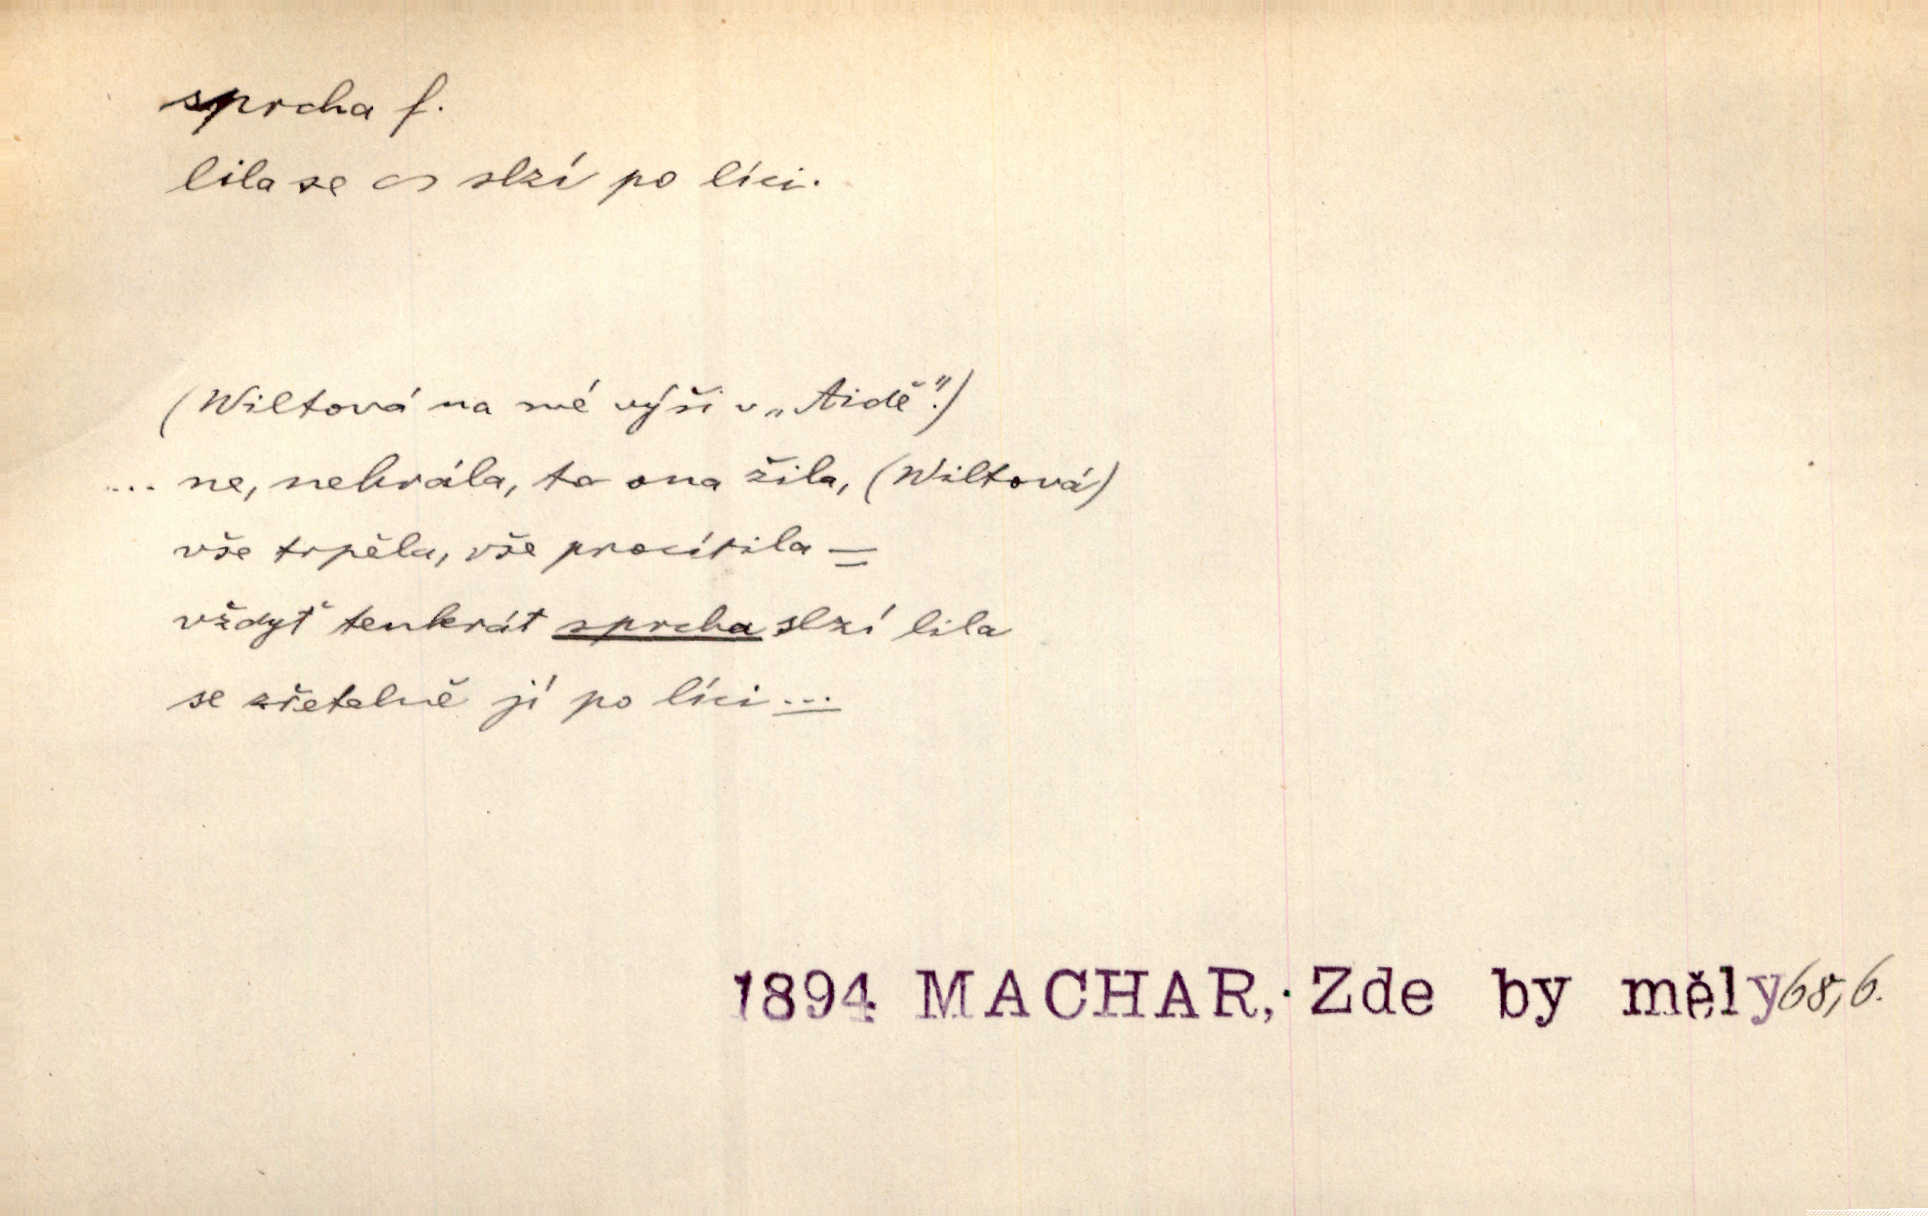 sprcha f.
lila se ∽ slzí po líci.
(Wiltová na své výši v „Aidě“.)
... ne, nehrála, ta ona žila, (Wiltová)
vše trpěla, vše procítila —
vždyť tenkrát sprcha slzí lila
se zřetelně jí po líci ...
1894 MACHAR, Zde by měly 68,6.